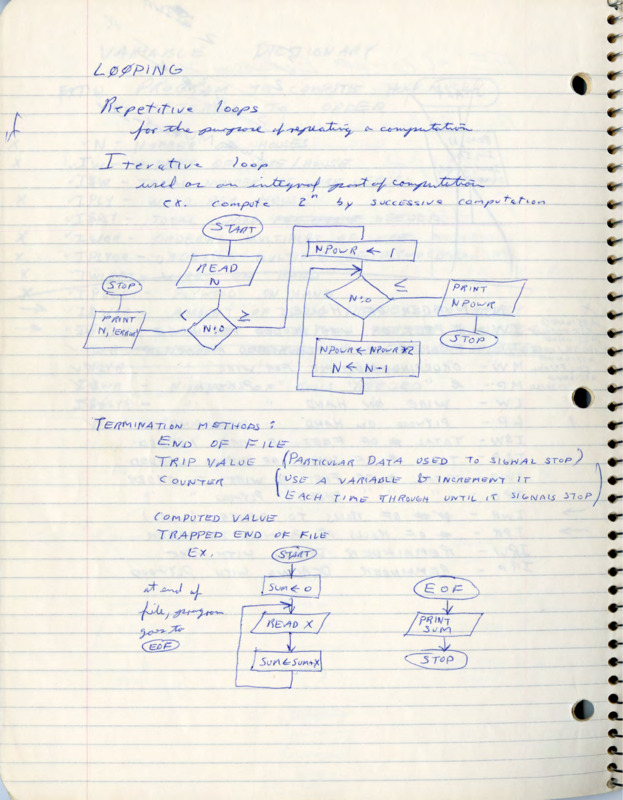 LØØPING
Repetitive loops
for the purpose of repeating a computation
Iterative loop
used as an integral part of computation
ex. compute 2ⁿ by successive computation
START
READ
N
STOP
PRINT
N, 'ERROR'
<
N:0
≥
NPOWR ← 1
N:0
≤
PRINT
NPOWR
STOP
NPOWR ← NPOWR*2
N ← N-1
TERMINATION METHODS:
END OF FILE
TRIP VALUE (PARTICULAR DATA USED TO SIGNAL STOP)
COUNTER (USE A VARIABLE & INCREMENT IT
EACH TIME THROUGH UNTIL IT SIGNALS STOP)
COMPUTED VALUE
TRAPPED END OF FILE
EX.
START
SUM ← 0
READ X
SUM ← SUM+X
at end of
file, program
goes to
EOF
EOF
PRINT
SUM
STOP